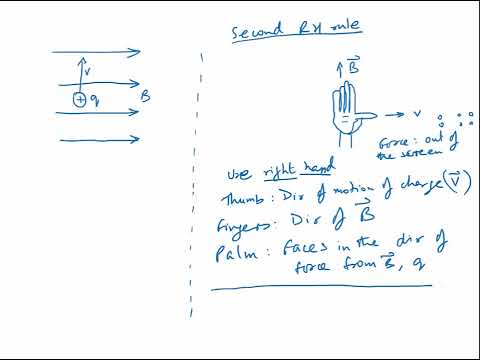 Second RH rule
V
q
B
B
V
Force: out of
the screen
Use right hand
Thumb: Dir of motion of charge (V)
Fingers: Dir of B
Palm: Faces in the dir of
force from B, q